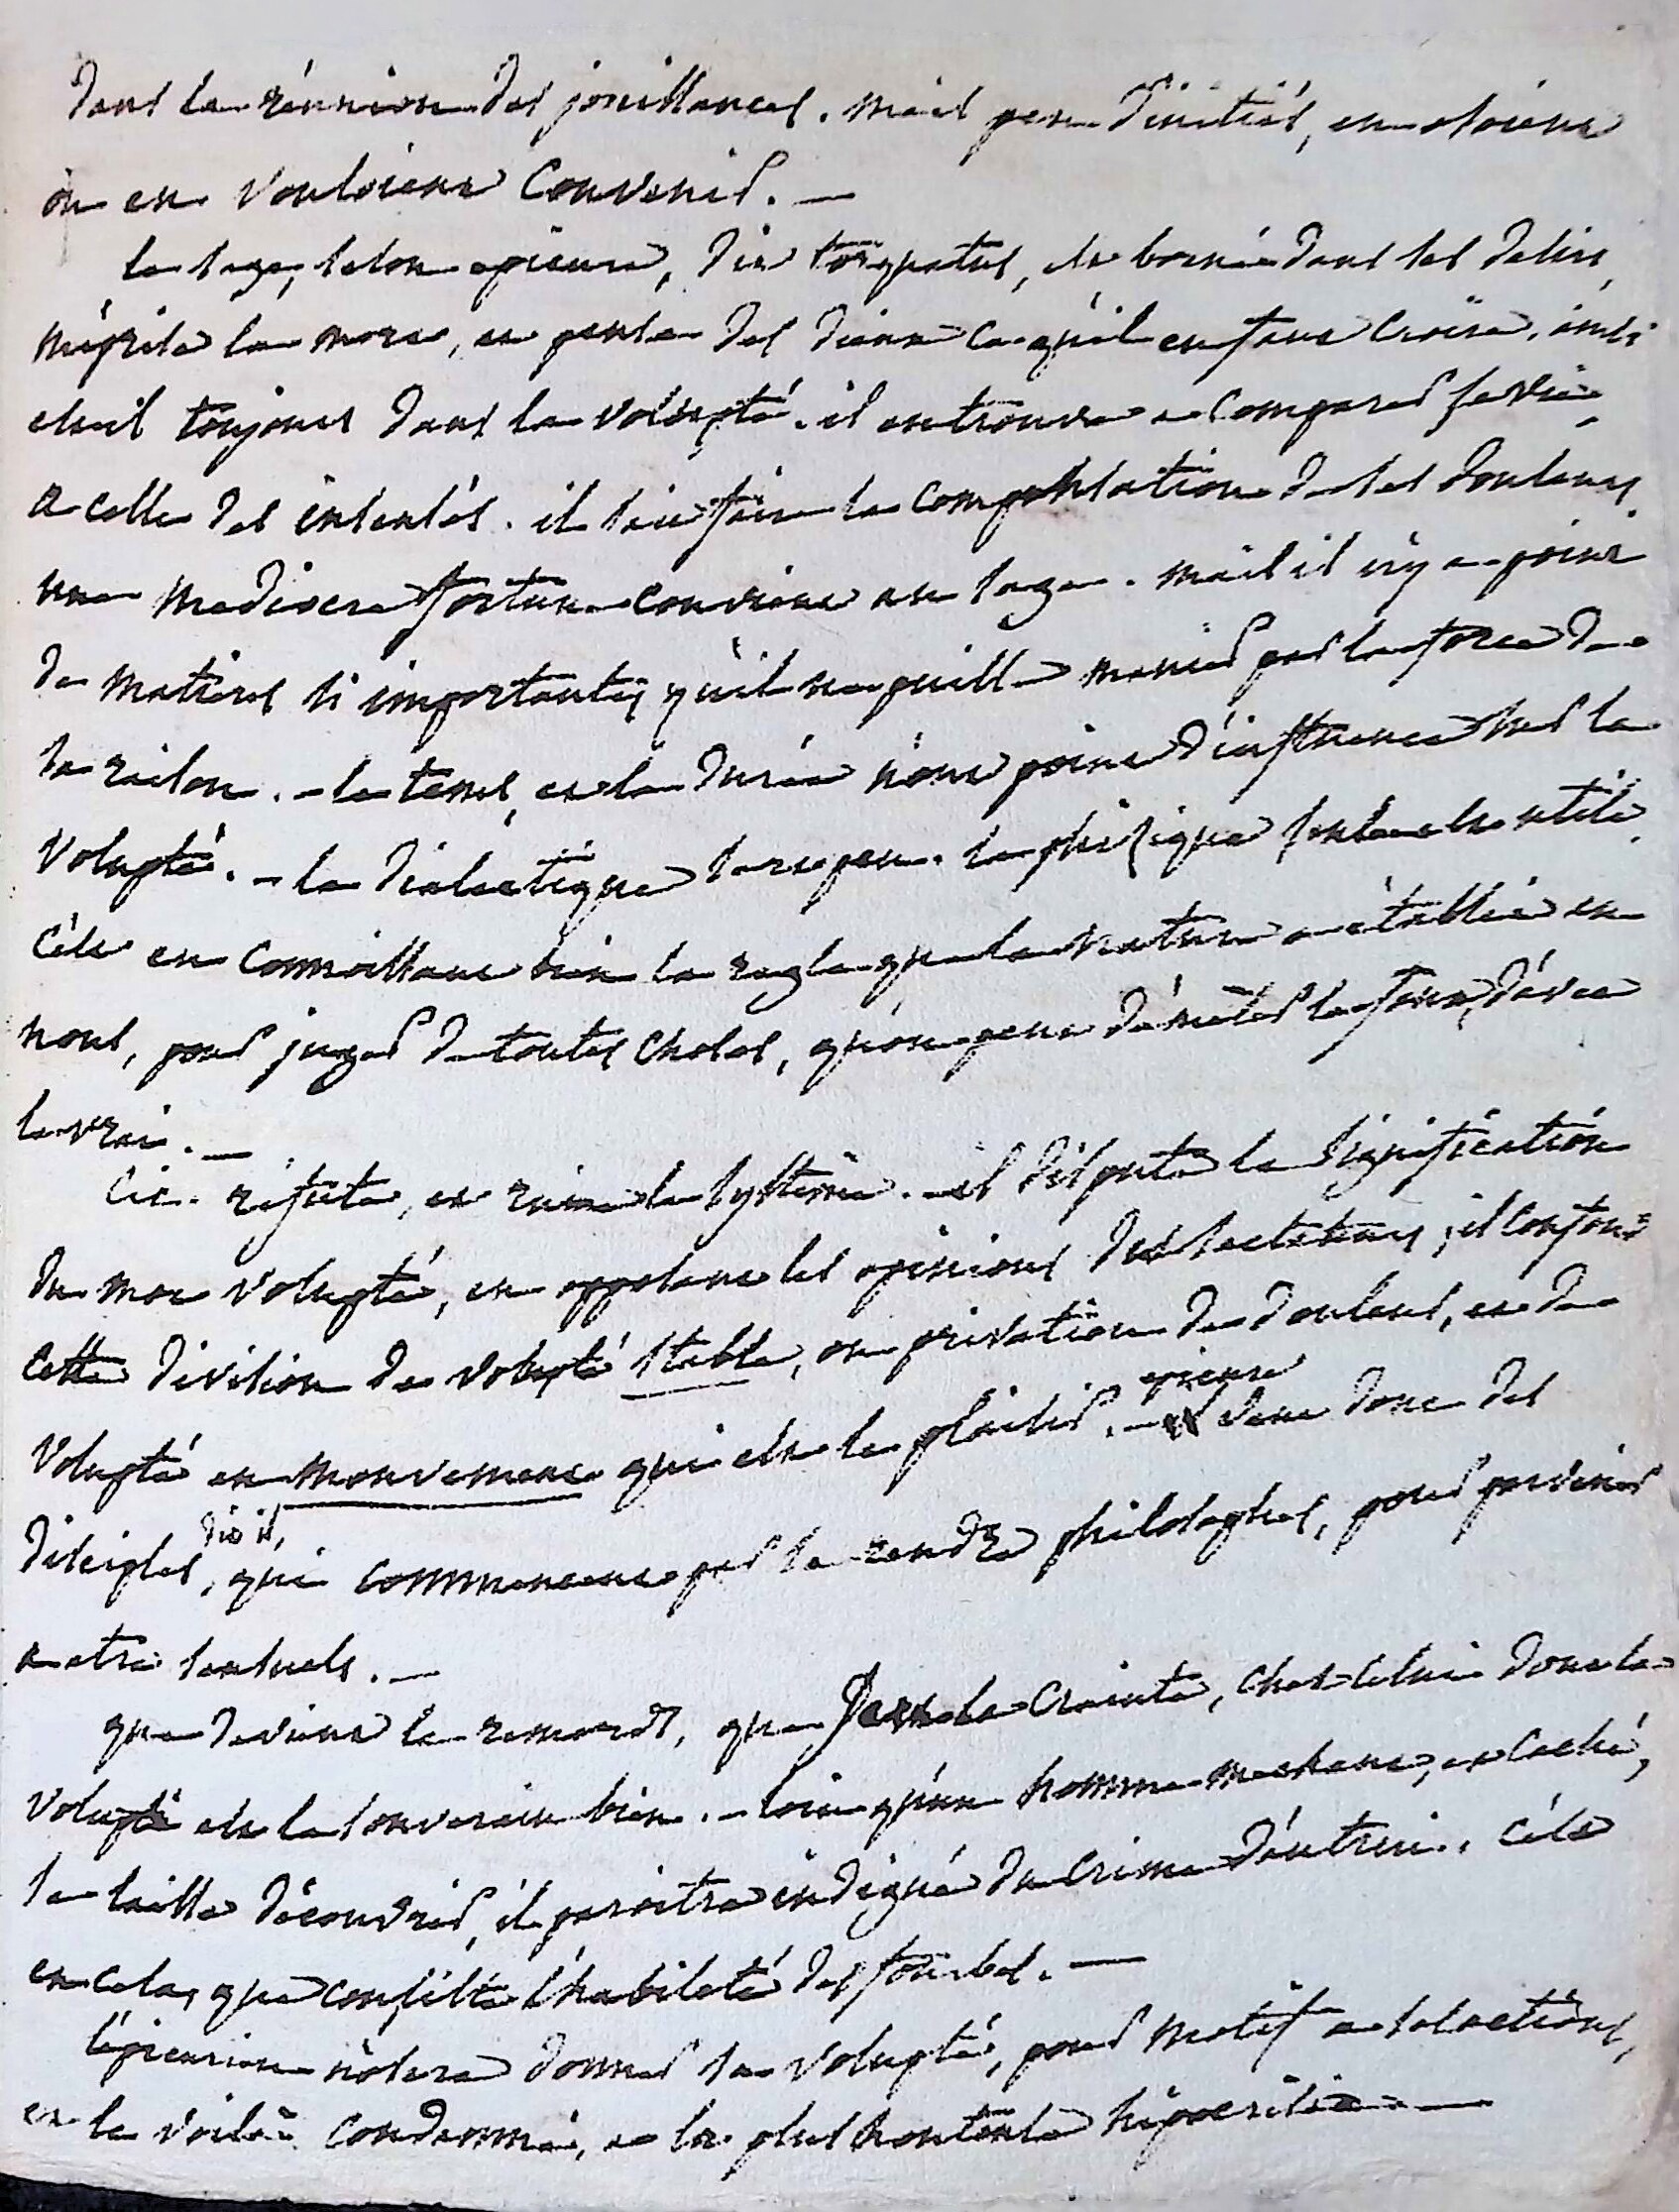 dans la réunion des jouissances. mais peu d'initiés, en etoient
ou en vouloient convenir. —
le sage, selon epicure, dit torquatus, est borné dans ses desirs,
méprise la mort, et pense des dieux ce qu'il en faut croire. ainsi
est-il toujours dans la volupté. il en trouve a comparer sa vie,
a celle des insensés. il sait faire la compensation de ses douleurs.
une mediocre fortune convient au sage. mais il n'y a point
de matieres si importantes qu'il ne puisse manier par la force de
sa raison. – le tems, et la durée n'ont point d'influence sur la
volupté. – la dialectique sert peu. la phisique seule est utile.
c'est en connoissant bien la regle que la nature a établie en
nous, pour juger de toutes choses, qu'on peut démêler le faux, d'avec
le vrai. —
Cic. réfute, et ruine le systême. – il dispute la signification
du mot volupté, en opposant les opinions des sectateurs, il confond
cette division de volupté stable, ou privation de douleur, et de
volupté en mouvement qui est le plaisir. – epicure veut donc des
disciples, dit il, qui commencent par se rendre philosophes, pour parvenir
a etre sensuels. —
que devient le remords, que sera la crainte, chez celui dont la
volupté est le souverain bien. – loin qu'un homme mechant, et caché,
se laisse découvrir, il paroitra indigné du crime d'autrui. c'est
en cela, que consiste l'habileté des fourbes. —
l'épicurien n'osera donner sa volupté, pour motif a ses actions,
et le voilà condamné, a la plus honteuse hipocrisie. —